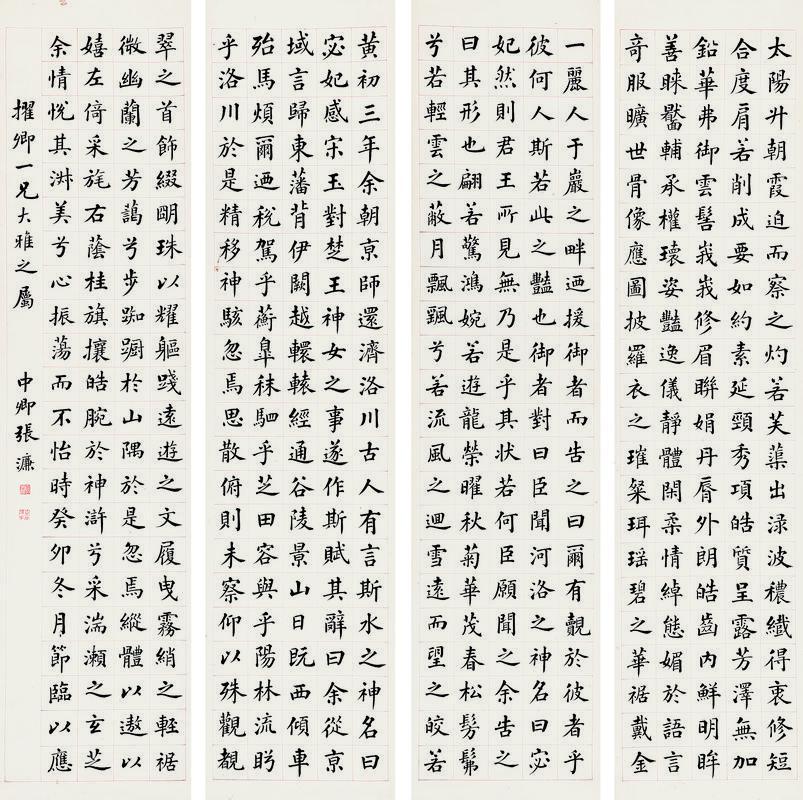 黄初三年余朝京師還濟洛川古人有言斯水之神名曰
宓妃感宋玉對楚王神女之事遂作斯賦其辭曰余從京
域言歸東藩背伊闕越轘轅經通谷陵景山日既西傾車
殆馬煩爾迺稅駕乎蘅皐秣駟乎芝田容與乎陽林流眄
乎洛川於是精移神駭忽焉思散俯則未察仰以殊觀覩
一麗人于巖之畔迺援御者而告之曰爾有覿於彼者乎
彼何人斯若此之豔也御者對曰臣聞河洛之神名曰宓
妃然則君王所見無乃是乎其状若何臣願聞之余告之
曰其形也翩若驚鴻婉若遊龍榮曜秋菊華茂春松髣髴
兮若輕雲之蔽月飄飖兮若流風之迴雪遠而望之皎若
太陽升朝霞迫而察之灼若芙蕖出渌波穠纖得衷修短
合度肩若削成要如約素延頸秀項皓質呈露芳澤無加
鉛華弗御雲髻峩峩修眉聯娟丹脣外朗皓齒內鮮明眸
善睞靨輔承權瓌姿豔逸儀靜體閑柔情綽態媚於語言
奇服曠世骨像應圖披羅衣之璀粲珥瑶碧之華裾戴金
翠之首飾綴明珠以耀軀踐遠遊之文履曳霧綃之輕裾
微幽蘭之芳藹兮步踟躕於山隅於是忽焉縱體以遨以
嬉左倚采旄右蔭桂旗攘皓腕於神滸兮采湍瀨之玄芝
余情悅其淑美兮心振蕩而不怡時癸卯冬月節臨以應
擢卿一兄大雅之屬 中卿張濂